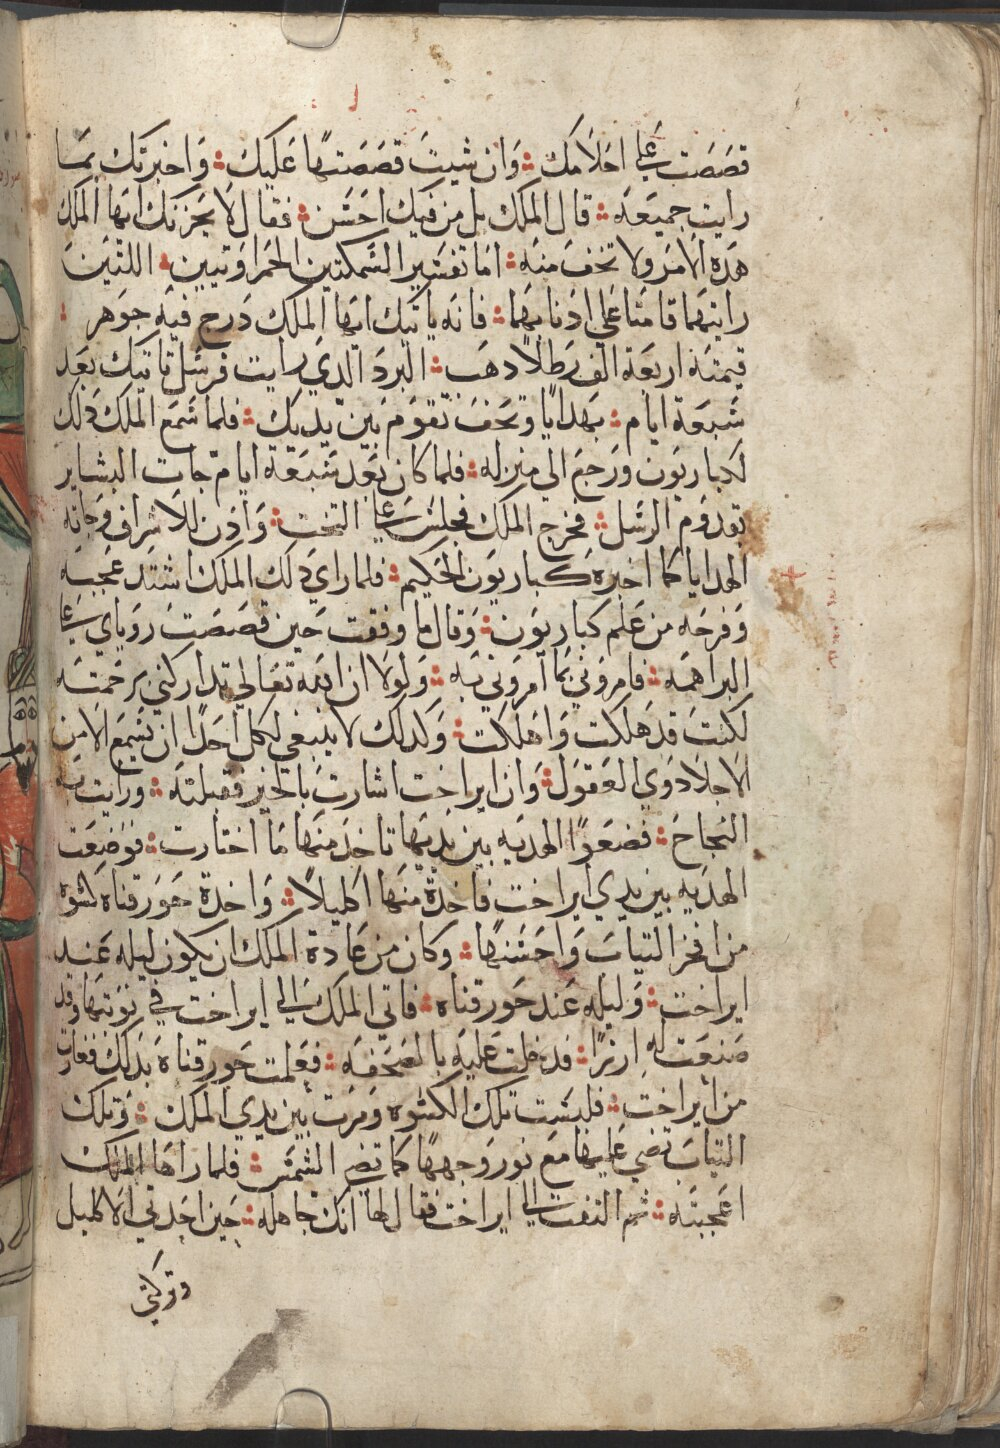 قصصت على احلامك ؛ وان شيت قصصتها عليك ؛ واخبرتك بما
رايت جميعه ؛ قال الملك بل من فيك احسن ؛ فقال لا يحزنك ايها الملك
هده الامر ولا تخف منه ؛ اما تفسير السمكتين الحمراوتيين ؛ اللتين
رايتهما قامتا على ادنابهما ؛ فانه ياتيك ايها الملك درج فيه جوهر ؛
قيمته اربعة الف رطلا دهب ؛ البرد الدي رايت فرسل تاتيك بعد
سبعة ايام ؛ بهدايا وتحف تقوم بين يديك ؛ فلما سمع الملك دلك
لكباريون ورجع الى منزله ؛ فلما كان بعد سبعة ايام جات البشاير
بقدوم الرسل ؛ فخرج الملك فجلس على التخت ؛ وادن للاشراف وجاته
الهدايا كما اخبره كباريون الحكيم ؛ فلما راي دلك الملك اشتد عجبه
وفرحه من علم كباريون ؛ وقال ما وفقت حين قصصت روياي على
البراهمه ؛ فامروني بما امروني به ؛ ولولا ان الله تعالى تداركني برحمته
لكنت قد هلكت واهلكت ؛ ولدلك لا ينبغي لكل احدا ان يسمع الا من
الاجلا دوي العقول ؛ وان ايراخت اشارت بالخير فقبلته ؛ ورايت به
النجاح ؛ فضعوا الهديه بين يديها تاخد منها ما اختارت ؛ فوضعت
الهديه بين يدي ايراخت فاخدة منها اكليلا ؛ واخدة حورقناه كسوه
من افخر التياب واحسنها ؛ وكان من عادة الملك ان يكون ليله عند
ايراخت ؛ وليله عند حورقناه ؛ فاتى الملك الى ايراخت في نوبتها وقد
صنعت له ارزا ؛ فدخلت عليه بالصحفه ؛ فعلمت حورقناه بدلك فغارت
من ايراخت ؛ فلبست تلك الكسوه ومرت بين يدي الملك ؛ وتلك
التياب تضي عليها مع نور وجهها كما تضي الشمس ؛ فلما راها الملك
اعجبته ؛ تم التفت الى ايراخت فقال لها انك جاهله ؛ حين اخدتي الاكليل
وتركتي